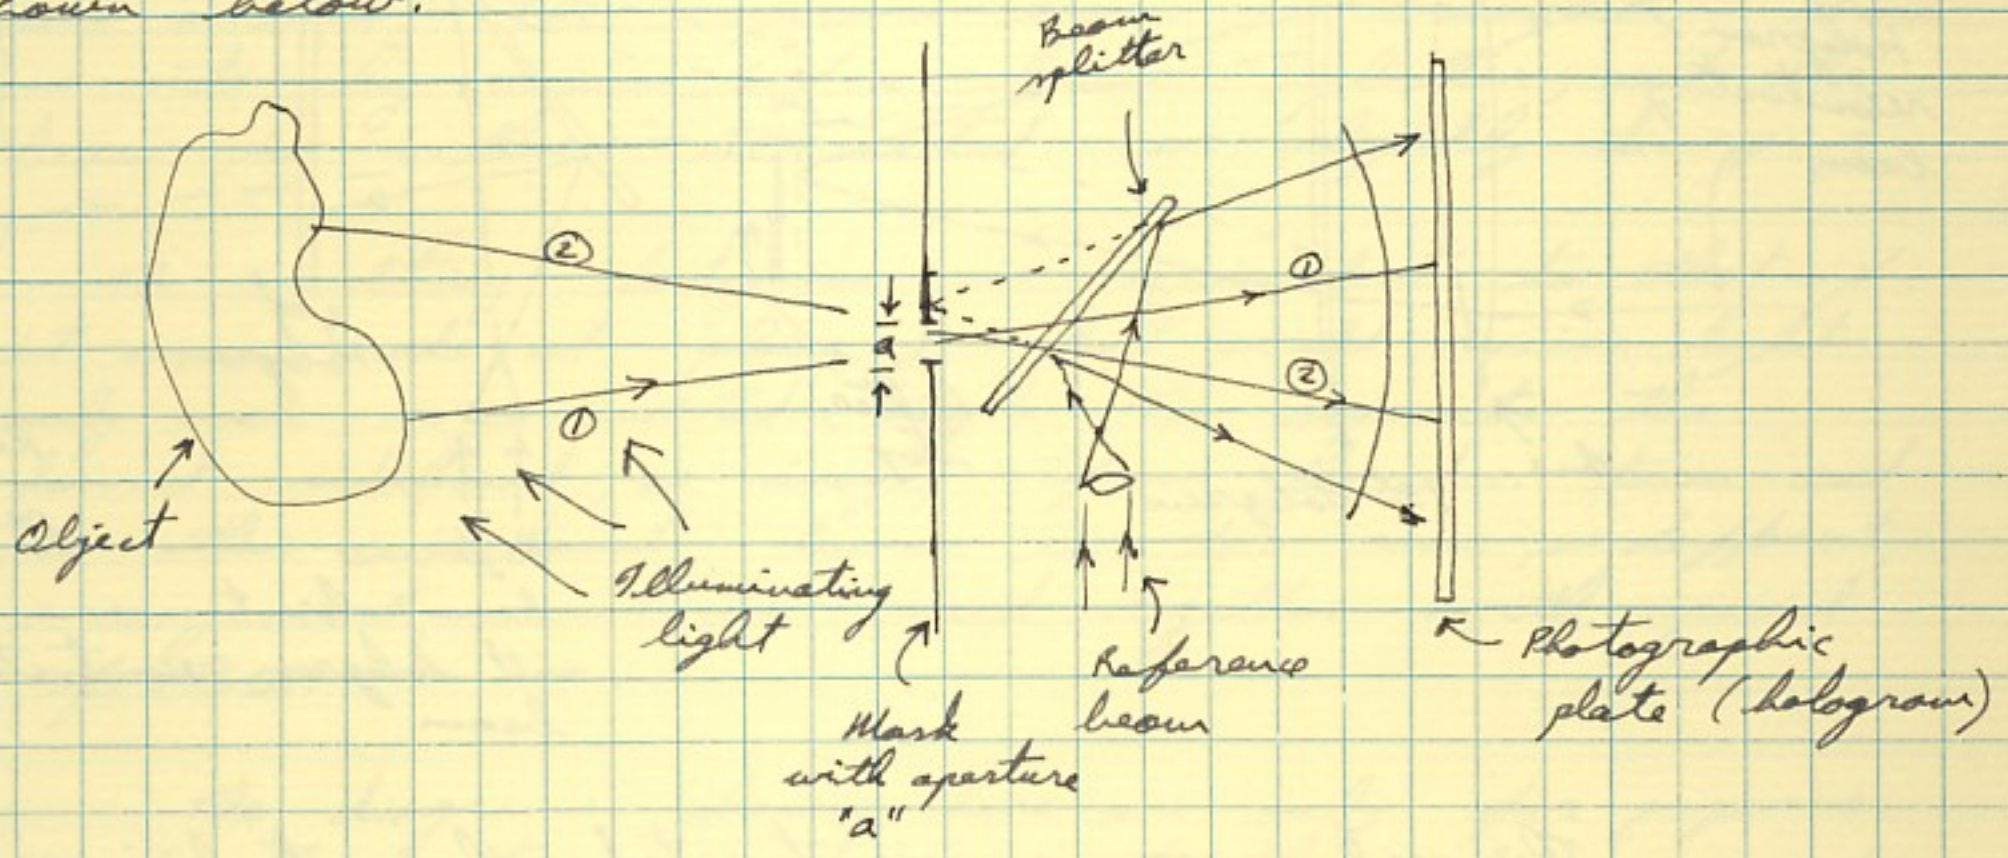 shown below.
Beam
splitter
②
①
a
①
②
Object
Illuminating
light
Mask
with aperture
"a"
Reference
beam
Photographic
plate (hologram)